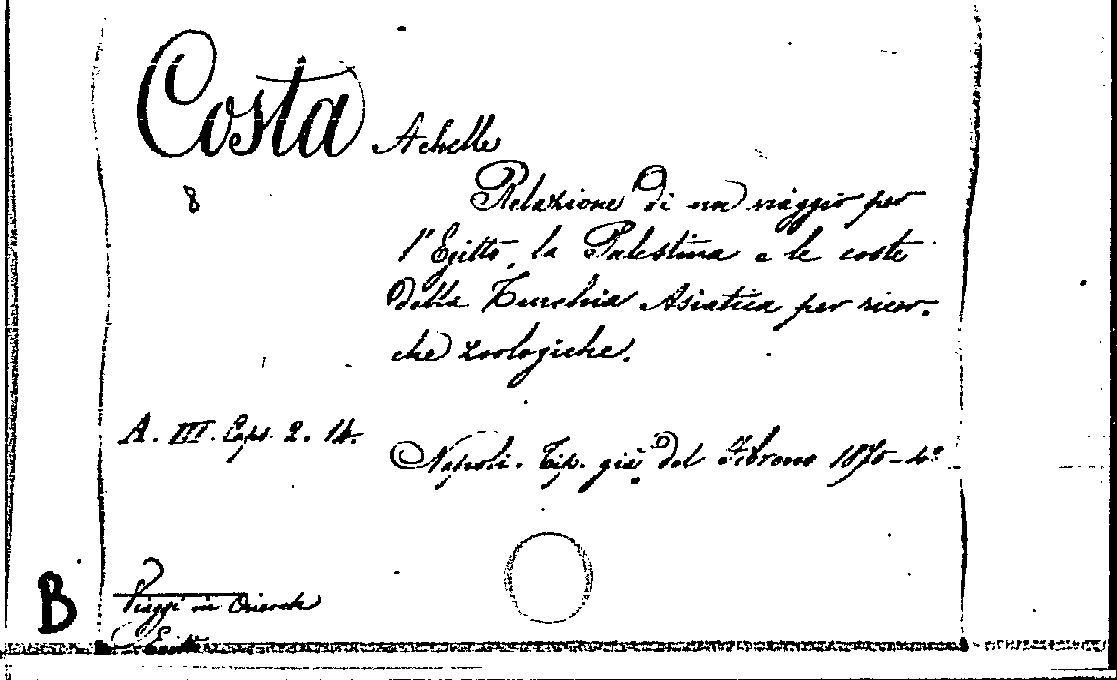 Costa Achille
8
Relazione di un viaggio per
l'Egitto, la Palestina e le coste
della Turchia Asiatica per ricer-
che zoologiche.
A. III. Caps. 2. 14.
Napoli. Tip. già del Fibreno 1875-4°
B
Viaggi in Oriente
Egitto